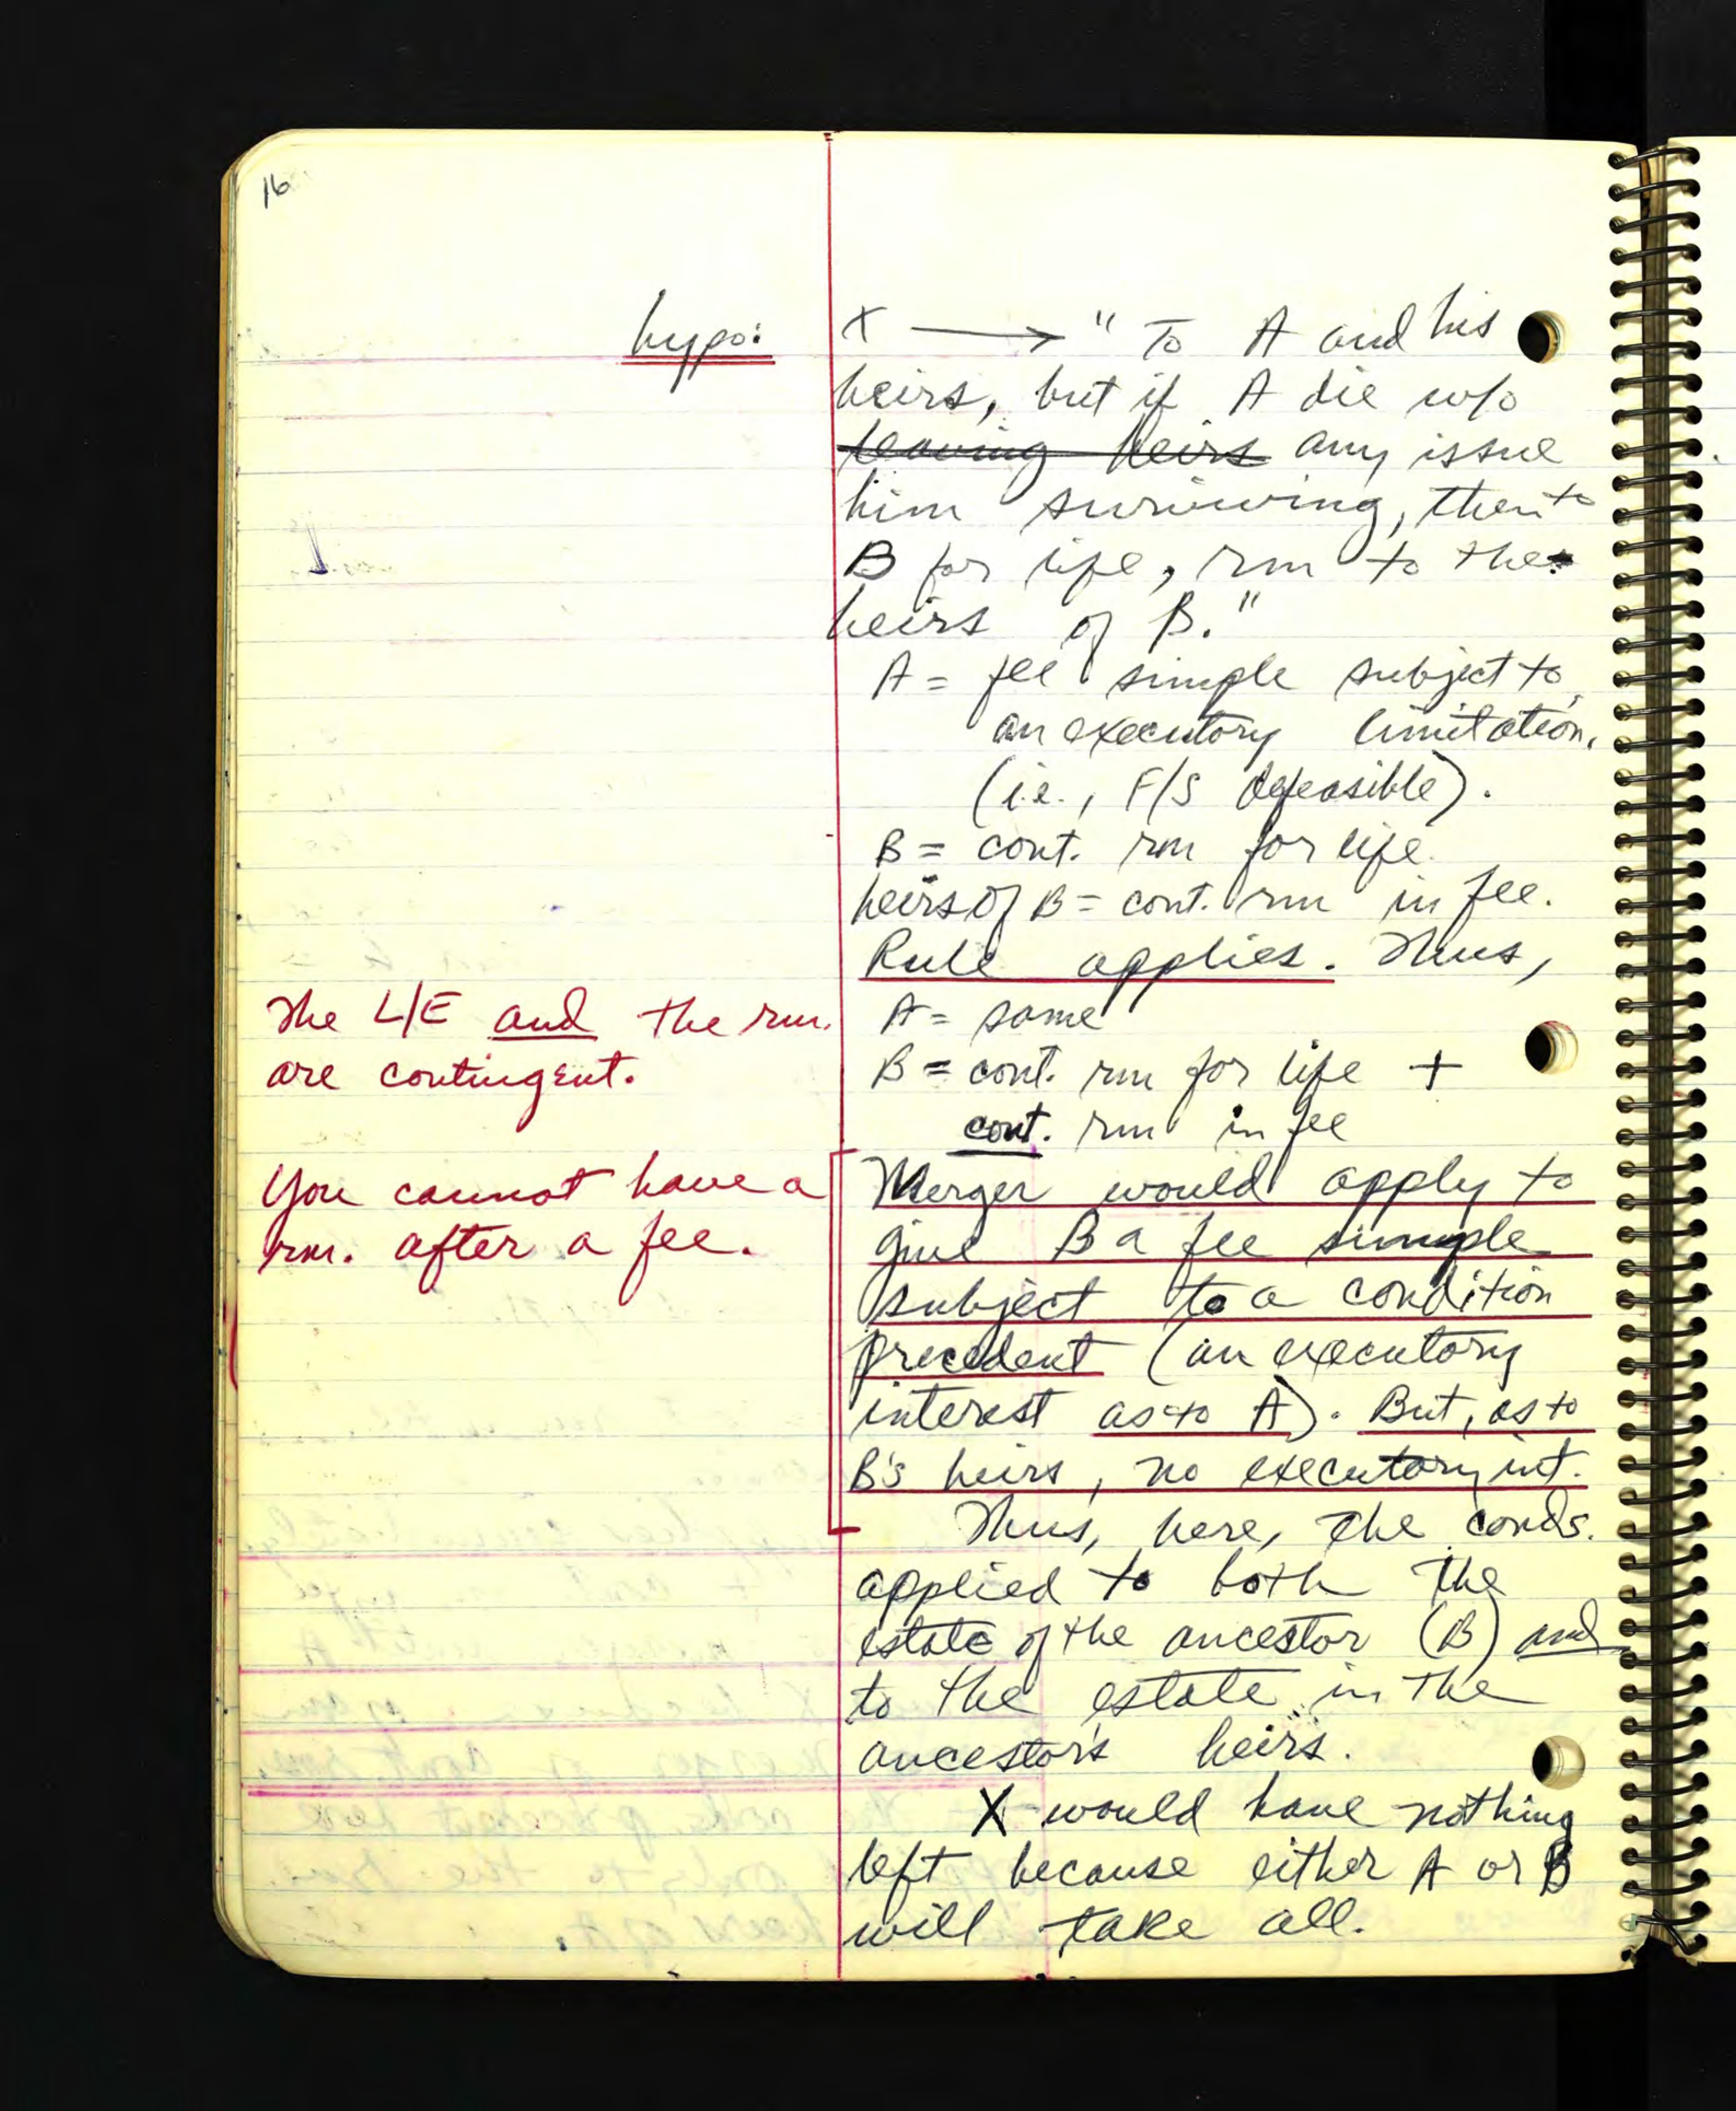 16
hypo:
X ⟶ "To A and his
heirs, but if A die w/o
leaving heirs any issue
him surviving, then to
B for life, rm to the
heirs of B."
A = fee simple subject to
an executory limitation.
(i.e., F/S defeasible).
B = cont. rm for life
heirs of B = cont. rm in fee.
Rule applies. Thus,
The L/E and the rm.
are contingent.
A = same
B = cont. rm for life +
cont. rm in fee
You cannot have a
rm. after a fee.
Merger would apply to
give B a fee simple
subject to a condition
precedent (an executory
interest as to A). But, as to
B's heirs, no executory int.
Thus, here, the conds.
applied to both the
estate of the ancestor (B) and
to the estate in the
ancestor's heirs.
X would have nothing
left because either A or B
will take all.